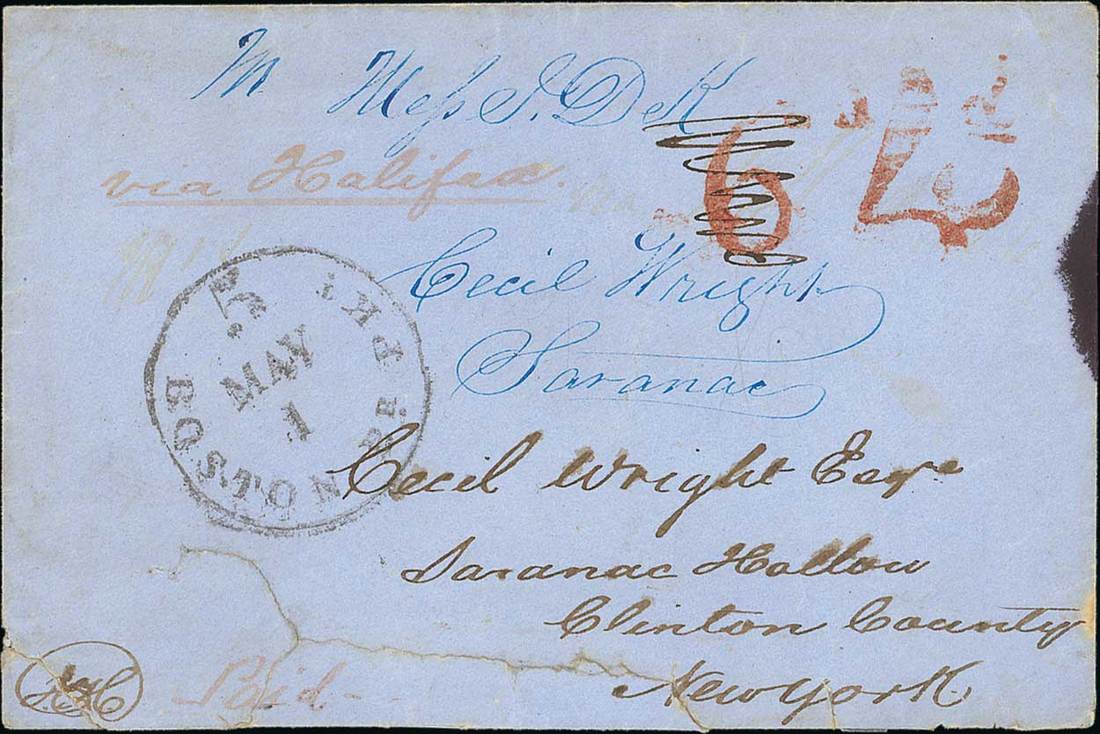 Mess
via Halifax.
6
Cecil Wright
Saranac
5
MAY
1
BOSTON BR. PKT
Cecil Wright Esqre
Saranac Hollow
Clinton County
New York
Paid